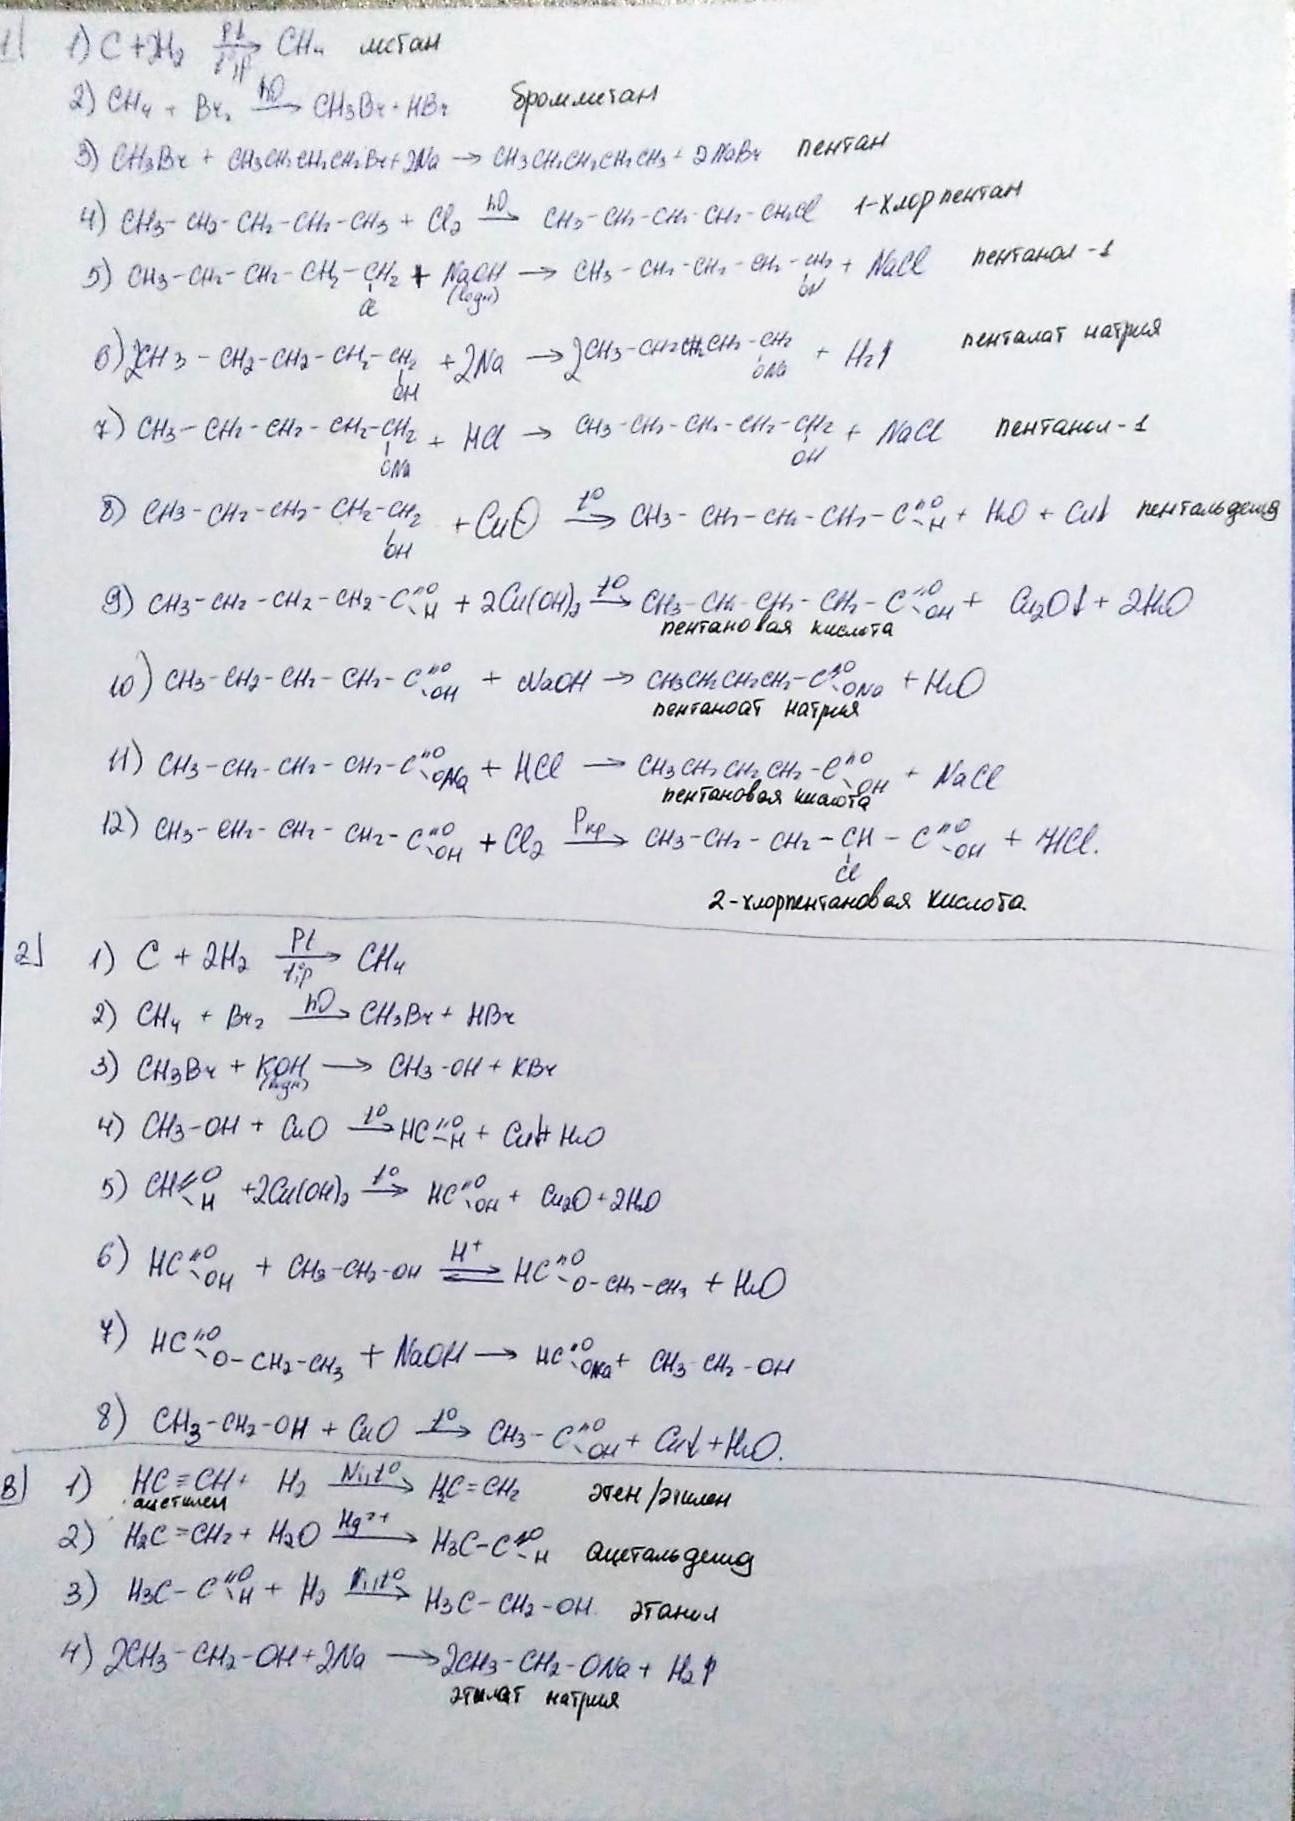 1)
1) C + 2H2 Pt t°,p → CH4 метан
2) CH4 + Br2 hυ → CH3Br + HBr бромметан
3) CH3Br + CH3CH2CH2CH2Br + 2Na → CH3CH2CH2CH2CH3 + 2NaBr пентан
4) CH3-CH2-CH2-CH2-CH3 + Cl2 hυ → CH3-CH2-CH2-CH2-CH2Cl 1-хлорпентан
5) CH3-CH2-CH2-CH2-CH2(Cl) + NaOH (водн) → CH3-CH2-CH2-CH2-CH2(OH) + NaCl пентанол-1
6) 2CH3-CH2-CH2-CH2-CH2(OH) + 2Na → 2CH3-CH2CH2CH2-CH2(ONa) + H2↑ пенталат натрия
7) CH3-CH2-CH2-CH2-CH2(ONa) + HCl → CH3-CH2-CH2-CH2-CH2(OH) + NaCl пентанол-1
8) CH3-CH2-CH2-CH2-CH2(OH) + CuO t° → CH3-CH2-CH2-CH2-C(=O)-H + H2O + Cu↓ пентальдегид
9) CH3-CH2-CH2-CH2-C(=O)-H + 2Cu(OH)2 t° → CH3-CH2-CH2-CH2-C(=O)-OH + Cu2O↓ + 2H2O
пентановая кислота
10) CH3-CH2-CH2-CH2-C(=O)-OH + NaOH → CH3CH2CH2CH2-C(=O)-ONa + H2O
пентаноат натрия
11) CH3-CH2-CH2-CH2-C(=O)-ONa + HCl → CH3CH2CH2CH2-C(=O)-OH + NaCl
пентановая кислота
12) CH3-CH2-CH2-CH2-C(=O)-OH + Cl2 Pкр → CH3-CH2-CH2-CH(Cl)-C(=O)-OH + HCl.
2-хлорпентановая кислота.
2)
1) C + 2H2 Pt t°,p → CH4
2) CH4 + Br2 hυ → CH3Br + HBr
3) CH3Br + KOH (водн) → CH3-OH + KBr
4) CH3-OH + CuO t° → HC(=O)-H + Cu↓ + H2O
5) CH(=O)-H + 2Cu(OH)2 t° → HC(=O)-OH + Cu2O + 2H2O
6) HC(=O)-OH + CH3-CH2-OH H+ ⇄ HC(=O)-O-CH2-CH3 + H2O
7) HC(=O)-O-CH2-CH3 + NaOH → HC(=O)-ONa + CH3-CH2-OH
8) CH3-CH2-OH + CuO t° → CH3-C(=O)-OH + Cu↓ + H2O.
3)
1) HC≡CH + H2 Ni,t° → H2C=CH2 этен/этилен
ацетилен
2) H2C=CH2 + H2O Hg2+ → H3C-C(=O)-H ацетальдегид
3) H3C-C(=O)-H + H2 Ni,t° → H3C-CH2-OH этанол
4) 2CH3-CH2-OH + 2Na → 2CH3-CH2-ONa + H2↑
этилат натрия